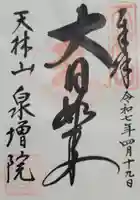 奉拝
令和七年四月十九日
大日如来
天林山
泉増院